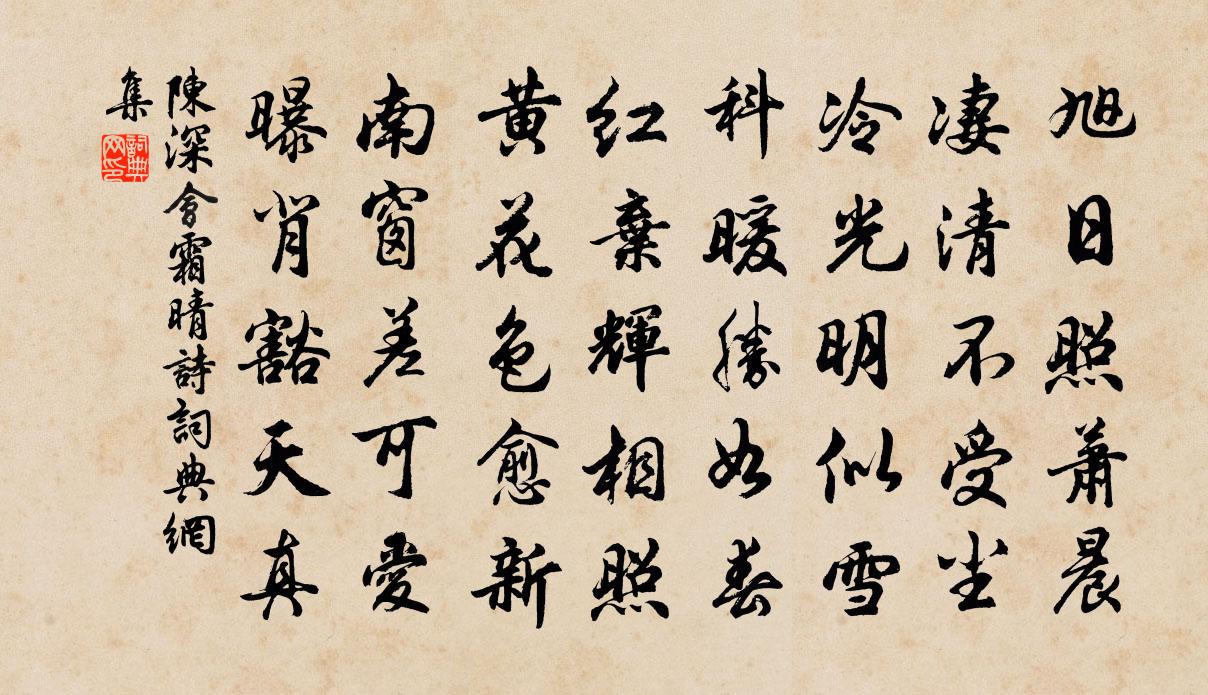 旭日照蕭晨
凄清不受尘
冷光明似雪
科暖勝如春
红葉輝相照
黄花色愈新
南窗差可愛
曝背豁天真
陳深會霜晴詩詞典網
集
詞典
网印